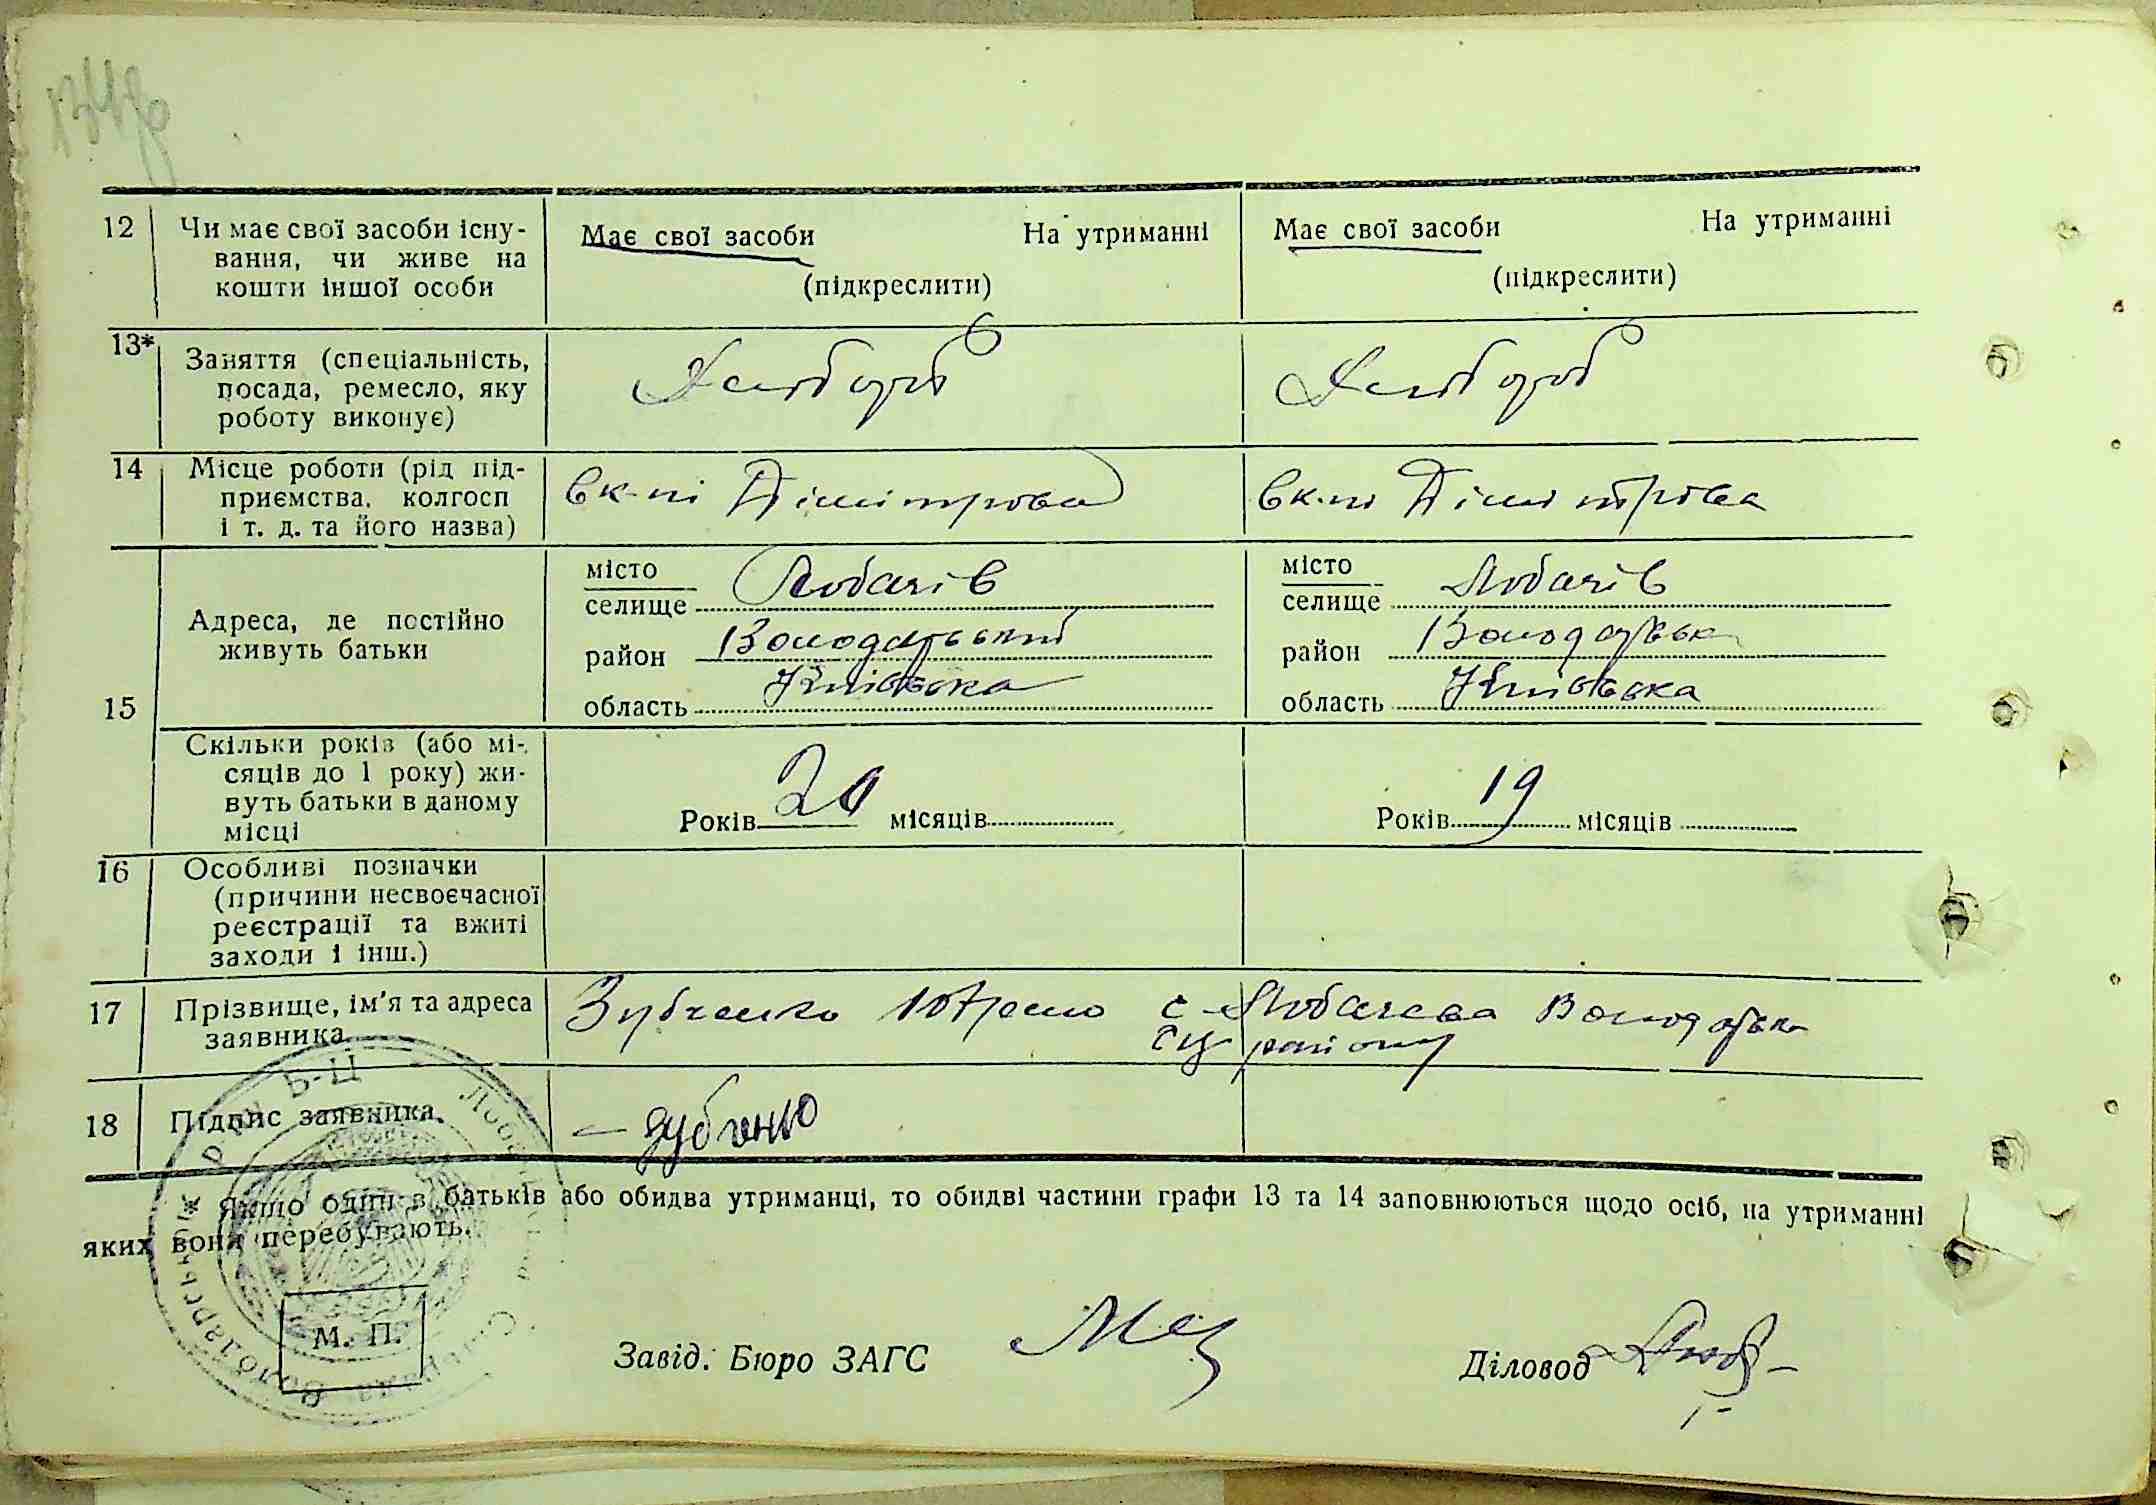 12 Чи має свої засоби існу-
вання, чи живе на
кошти іншої особи
Має свої засоби На утриманні
(підкреслити)
Має свої засоби На утриманні
(підкреслити)
13* Заняття (спеціальність,
посада, ремесло, яку
роботу виконує)
Хлібороб
Хлібороб
14 Місце роботи (рід під-
приємства, колгосп
і т. д. та його назва)
Дімітрова
Дімітрова
15 Адреса, де постійно
живуть батьки
місто
селище Лобачів
район Володарський
область Київська
місто
селище Лобачів
район Володарськ
область Київська
Скільки років (або мі-
сяців до 1 року) жи-
вуть батьки в даному
місці
Років 20 місяців
Років 19 місяців
16 Особливі позначки
(причини несвоєчасної
реєстрації та вжиті
заходи і інш.)
17 Прізвище, ім'я та адреса
заявника
Зубченко с Лобачева Володарськ
району
18 Підпис заявника
Зубченко
* Якщо один з батьків або обидва утриманці, то обидві частини графи 13 та 14 заповнюються щодо осіб, на утриманні
яких вони перебувають.
М. П.
Завід. Бюро ЗАГС
Діловод